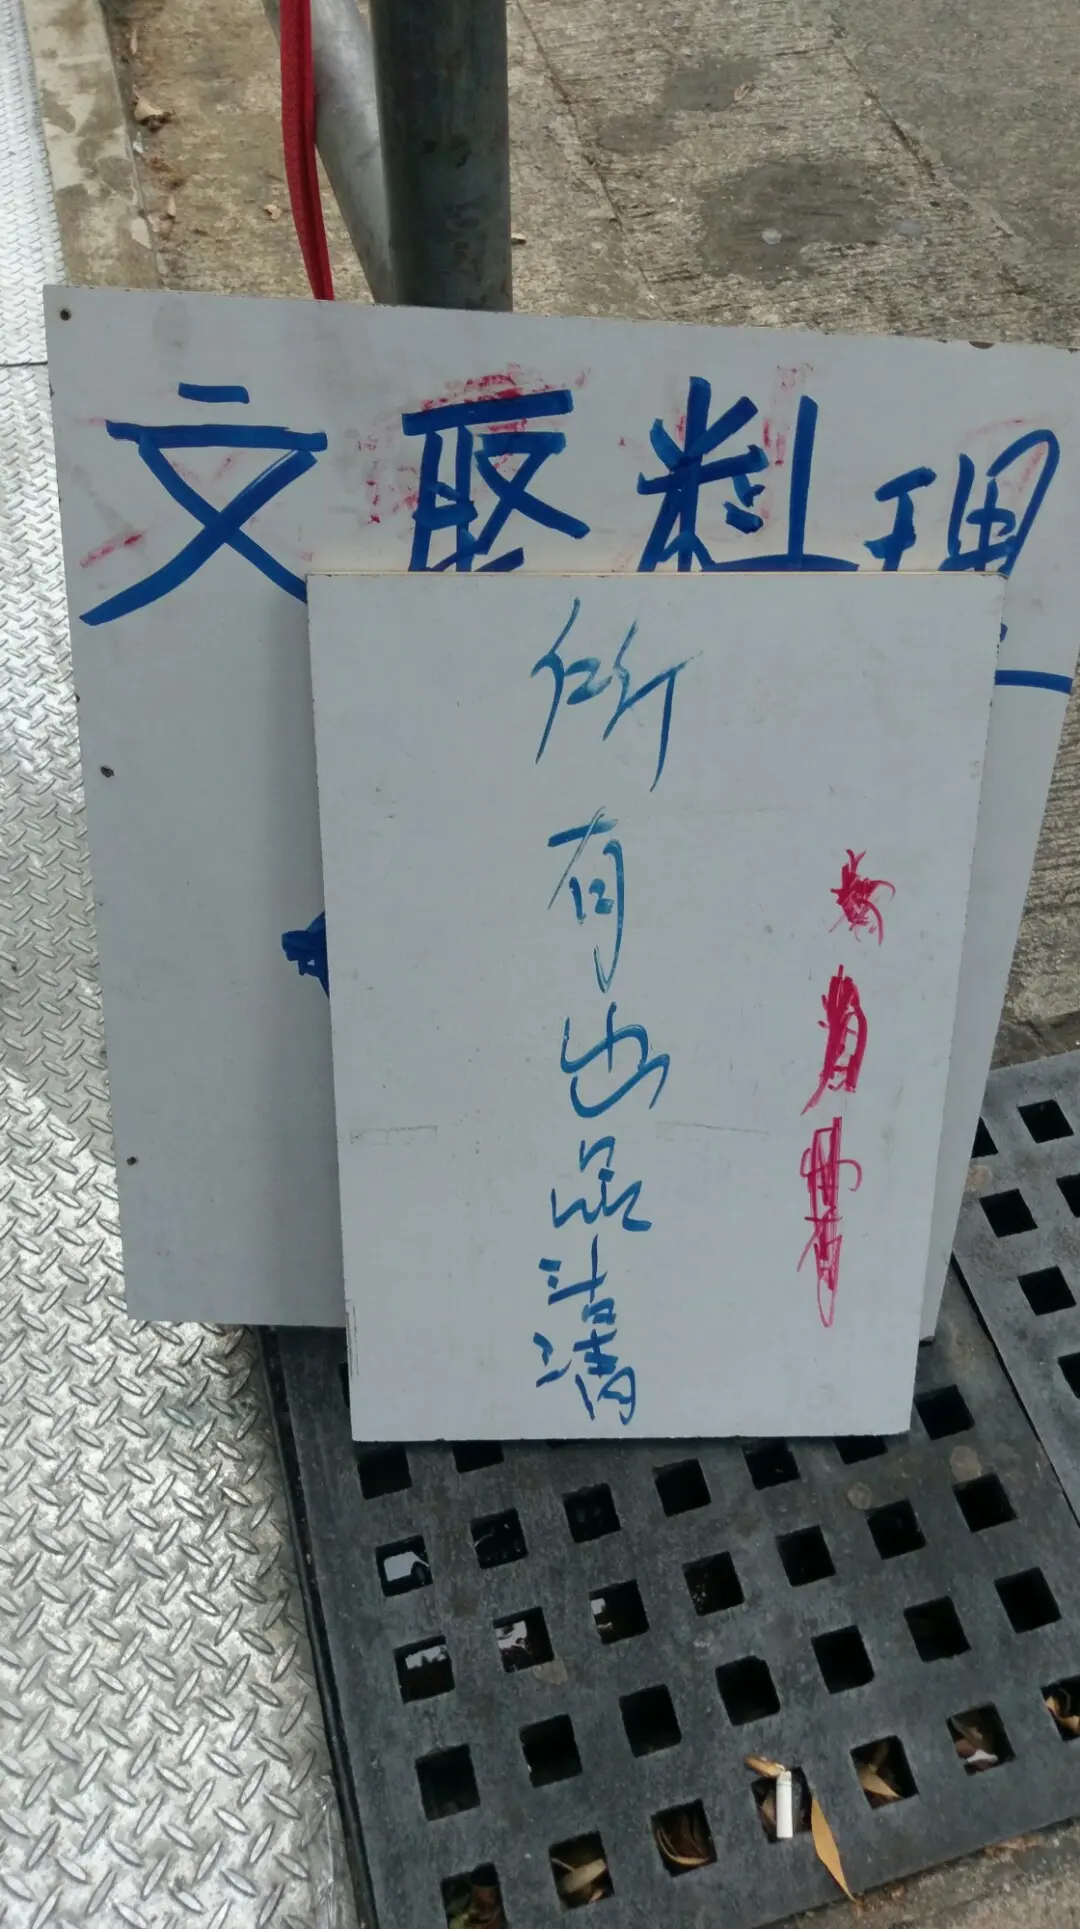 文聚料理
所有出品沽清